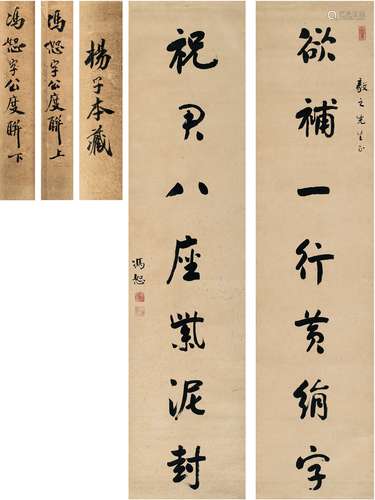 欲補一行黄絹字
敬之先生正
祝君八座紫泥封
馮恕
楊子本藏
馮恕字公度聯上
馮恕字公度聯下